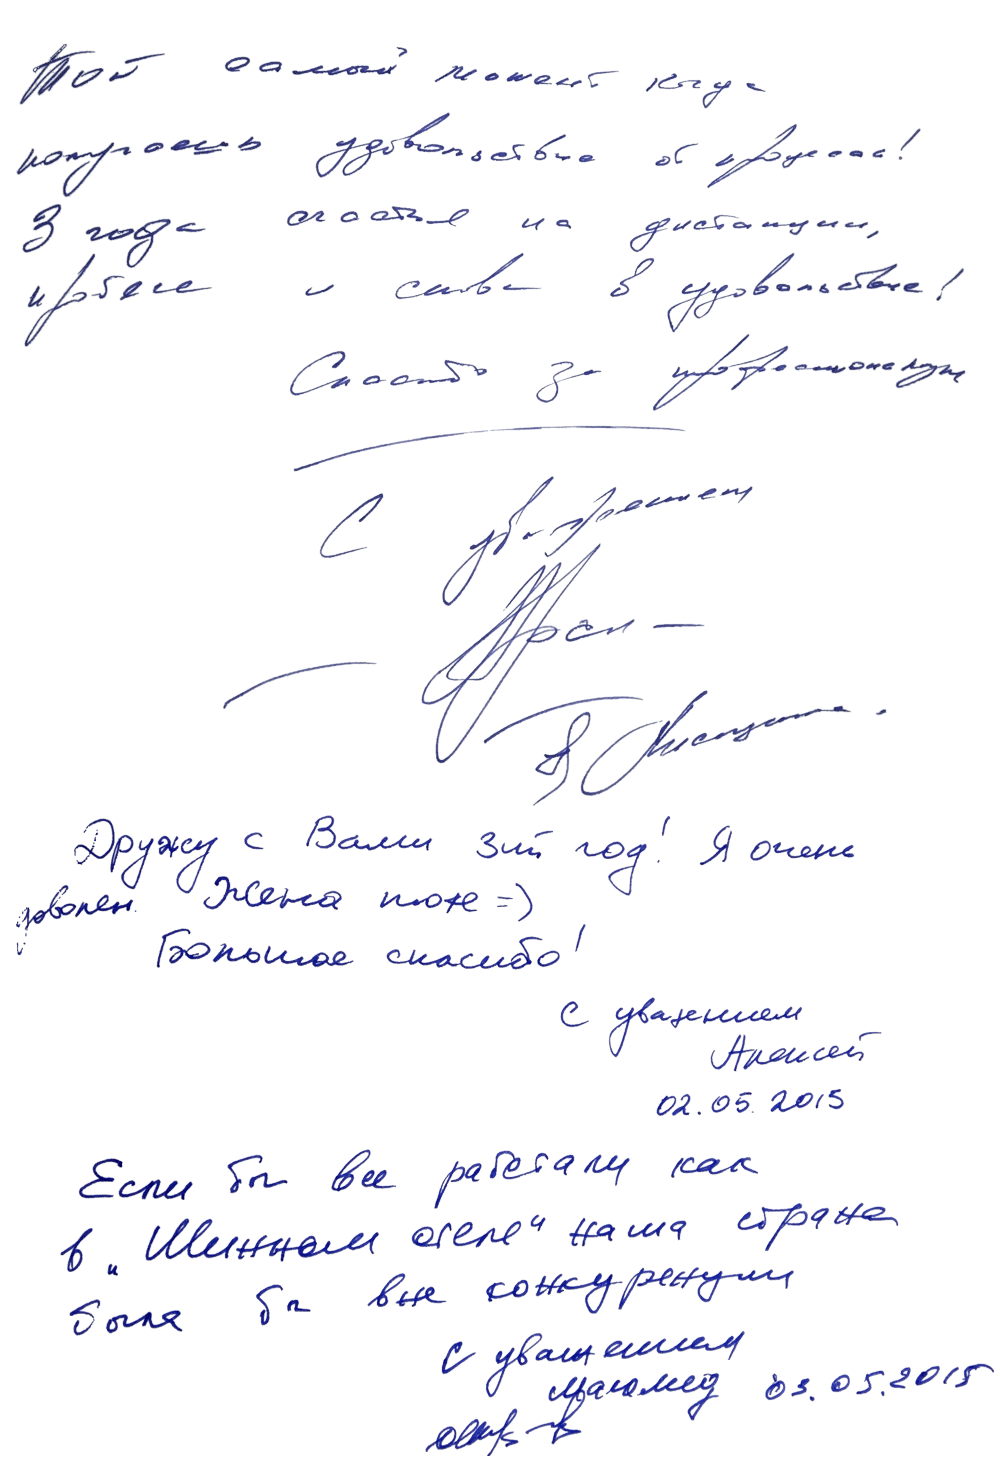 Той самый момент когда
получаешь удовольствие от процесса!
3 года счастья на дистанции,
и снова в удовольствие!
Спасибо за профессионализм
С уважением
Дружу с Вами 3ий год! Я очень
доволен. Жена тоже =)
Большое спасибо!
С уважением
Алексей
02.05.2015
Если бы все работали как
в "Шинном отеле" наша страна
была бы вне конкуренции
С уважением
Магомед 03.05.2015